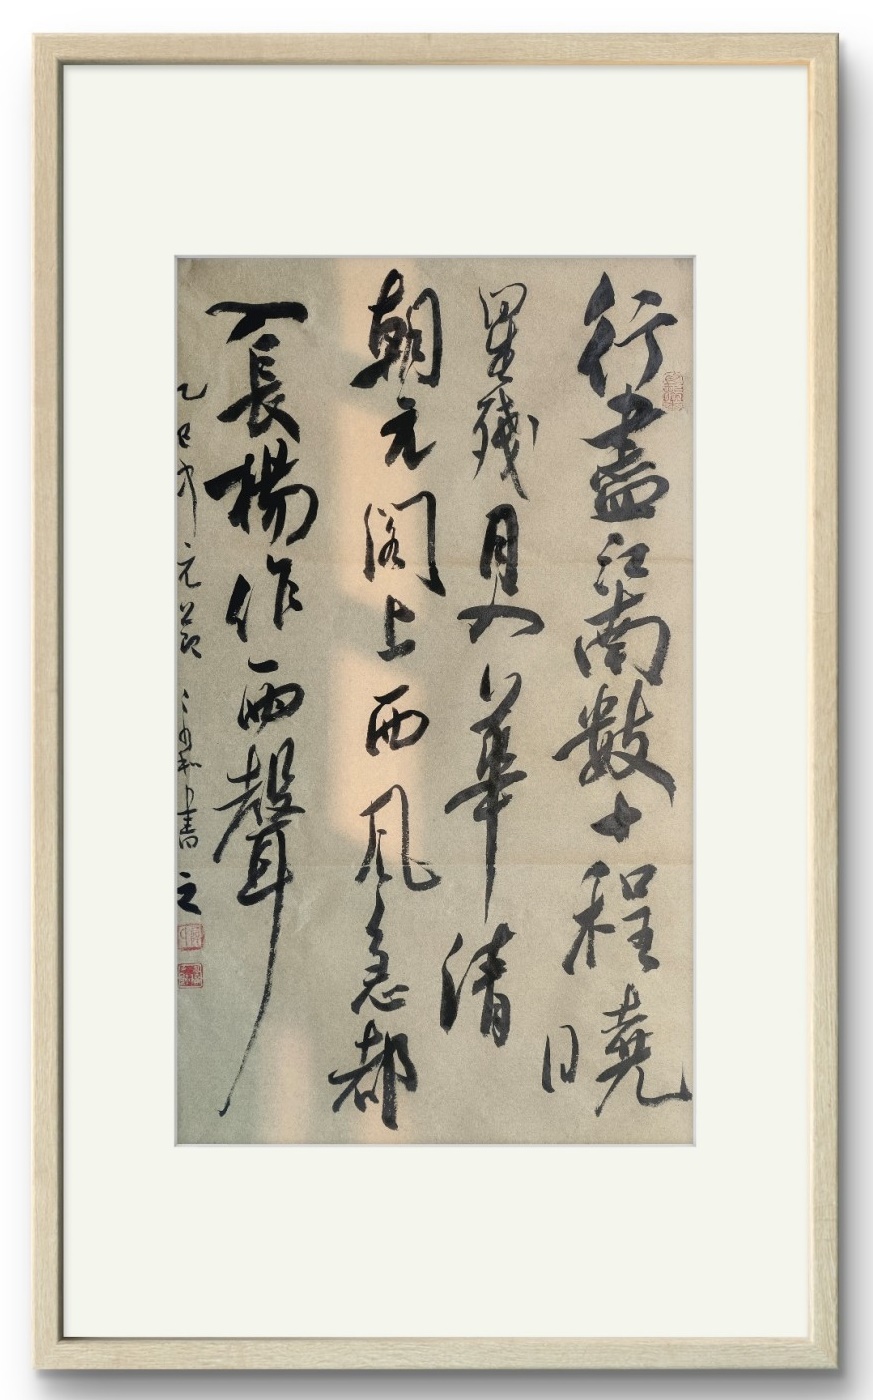 行盡江南數十程曉
星殘月入華清
朝元閣上西風急都
入長楊作雨聲
乙巳年元節 書之